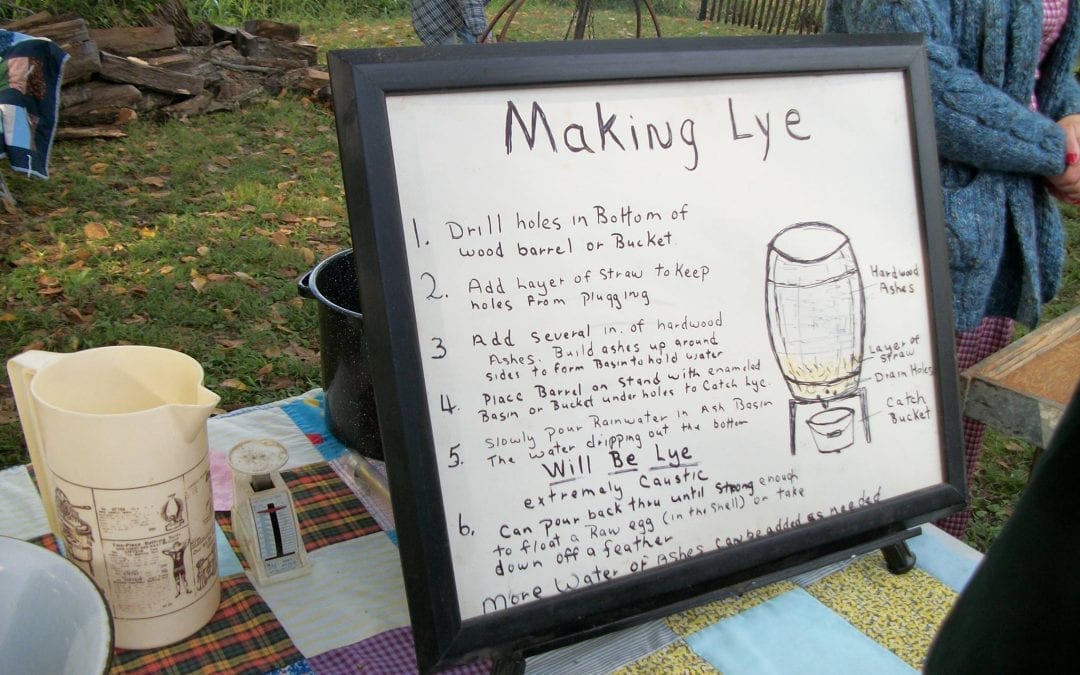 Making Lye
1. Drill holes in Bottom of
wood barrel or Bucket.
2. Add Layer of Straw to Keep
holes from plugging
3 Add several in. of hardwood
Ashes. Build ashes up around
sides to form Basin to hold water
4. Place Barrel on Stand with enameled
Basin or Bucket under holes to Catch Lye.
5. Slowly pour Rainwater in Ash Basin
The water dripping out the bottom
Will Be Lye
extremely Caustic
6. Can pour back thru until strong enough
to float a Raw egg (in the shell) or take
down off a feather
More Water or Ashes can be added as needed
Hardwood
Ashes
Layer of
Straw
Drain Holes
Catch
Bucket